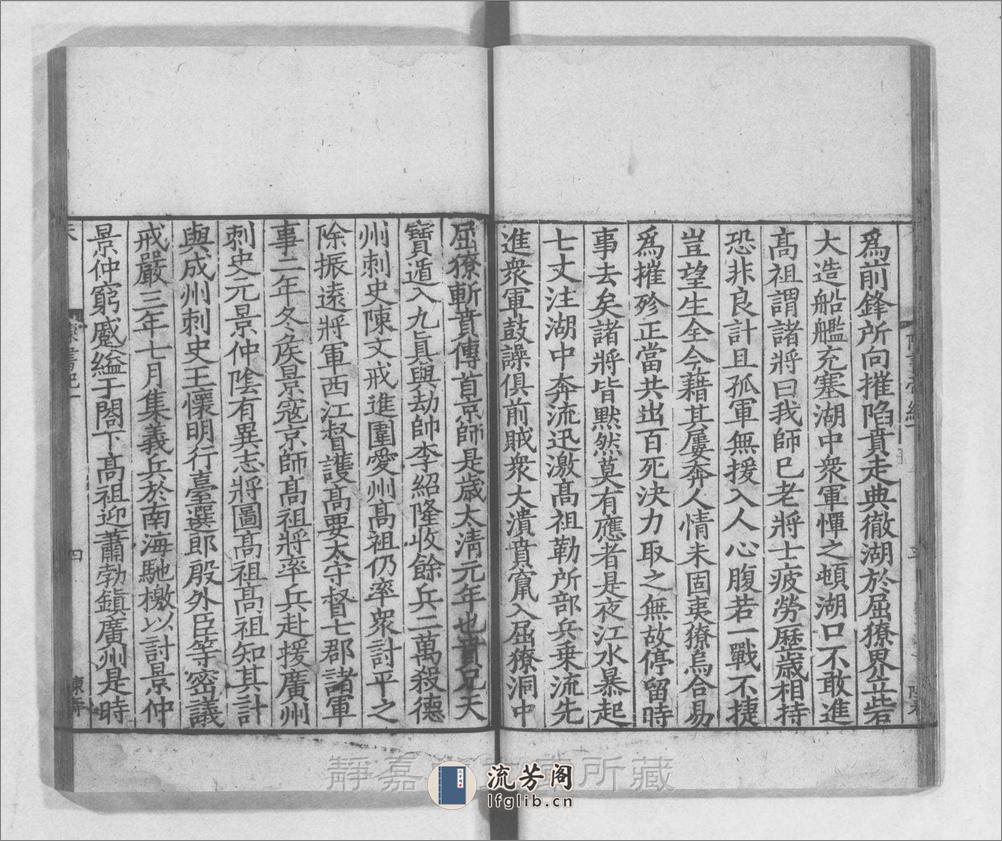 爲前鋒所向摧陷賁走典徹湖於屈獠界立砦
大造船艦充塞湖中衆軍憚之頓湖口不敢進
髙祖謂諸將曰我師已老將士疲勞歷歳相持
恐非良計且孤軍無援入人心腹若一戰不捷
豈望生全今藉其屢奔人情未固夷獠烏合易
爲摧殄正當共出百死决力取之無故停留時
事去矣諸將皆黙然莫有應者是夜江水暴起
七丈注湖中奔流迅激髙祖勒所部兵乗流先
進衆軍鼓譟俱前賊衆大潰賁竄入屈獠洞中
屈獠斬賁傳首京師是歳太清元年也賁兄天
寳遁入九真與劫帥李紹隆收餘兵二萬殺德
州刺史陳文戒進圍愛州髙祖仍率衆討平之
除振遠將軍西江督護髙要太守督七郡諸軍
事二年冬侯景寇京師髙祖將率兵赴援廣州
刺史元景仲隂有異志將圖髙祖髙祖知其計
與成州刺史王懷明行臺選郎殷外臣等密議
戒嚴三年七月集義兵於南海馳檄以討景仲
景仲窮蹙縊于閤下髙祖迎蕭勃鎮廣州是時
四
靜嘉 所藏
流芳阁
lfglib.cn